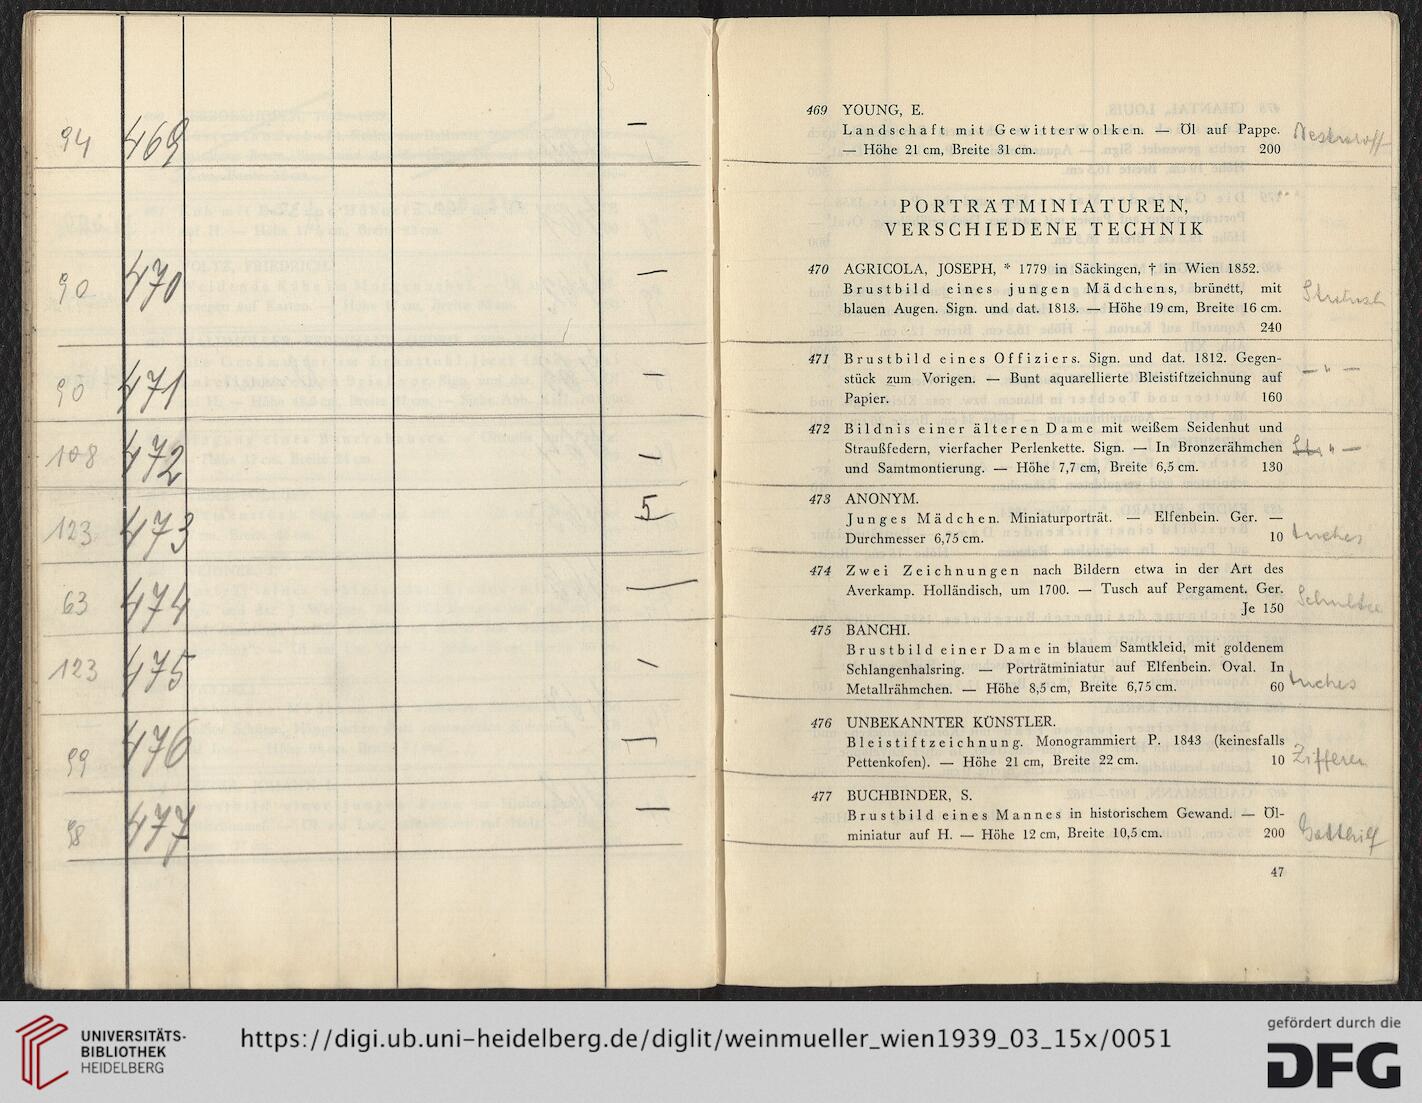 94 469 —
90 470 —
90 471 —
108 472 —
123 473 5
63 474
123 475
99 476
98 477 —
469 YOUNG, E.
Landschaft mit Gewitterwolken. — Öl auf Pappe.
— Höhe 21 cm, Breite 31 cm. 200
PORTRÄTMINIATUREN,
VERSCHIEDENE TECHNIK
470 AGRICOLA, JOSEPH, * 1779 in Säckingen, † in Wien 1852.
Brustbild eines jungen Mädchens, brünett, mit
blauen Augen. Sign. und dat. 1813. — Höhe 19 cm, Breite 16 cm.
240
471 Brustbild eines Offiziers. Sign. und dat. 1812. Gegen-
stück zum Vorigen. — Bunt aquarellierte Bleistiftzeichnung auf — " —
Papier. 160
472 Bildnis einer älteren Dame mit weißem Seidenhut und
Straußfedern, vierfacher Perlenkette. Sign. — In Bronzerähmchen " —
und Samtmontierung. — Höhe 7,7 cm, Breite 6,5 cm. 130
473 ANONYM.
Junges Mädchen. Miniaturporträt. — Elfenbein. Ger. —
Durchmesser 6,75 cm. 10
474 Zwei Zeichnungen nach Bildern etwa in der Art des
Averkamp. Holländisch, um 1700. — Tusch auf Pergament. Ger.
Je 150 Schultze
475 BANCHI.
Brustbild einer Dame in blauem Samtkleid, mit goldenem
Schlangenhalsring. — Porträtminiatur auf Elfenbein. Oval. In
Metallrähmchen. — Höhe 8,5 cm, Breite 6,75 cm. 60
476 UNBEKANNTER KÜNSTLER.
Bleistiftzeichnung. Monogrammiert P. 1843 (keinesfalls
Pettenkofen). — Höhe 21 cm, Breite 22 cm. 10 Zifferer
477 BUCHBINDER, S.
Brustbild eines Mannes in historischem Gewand. — Öl-
miniatur auf H. — Höhe 12 cm, Breite 10,5 cm. 200 Gotthilf
47
UNIVERSITÄTS-
BIBLIOTHEK
HEIDELBERG
https://digi.ub.uni-heidelberg.de/diglit/weinmueller_wien1939_03_15x/0051
gefördert durch die
DFG